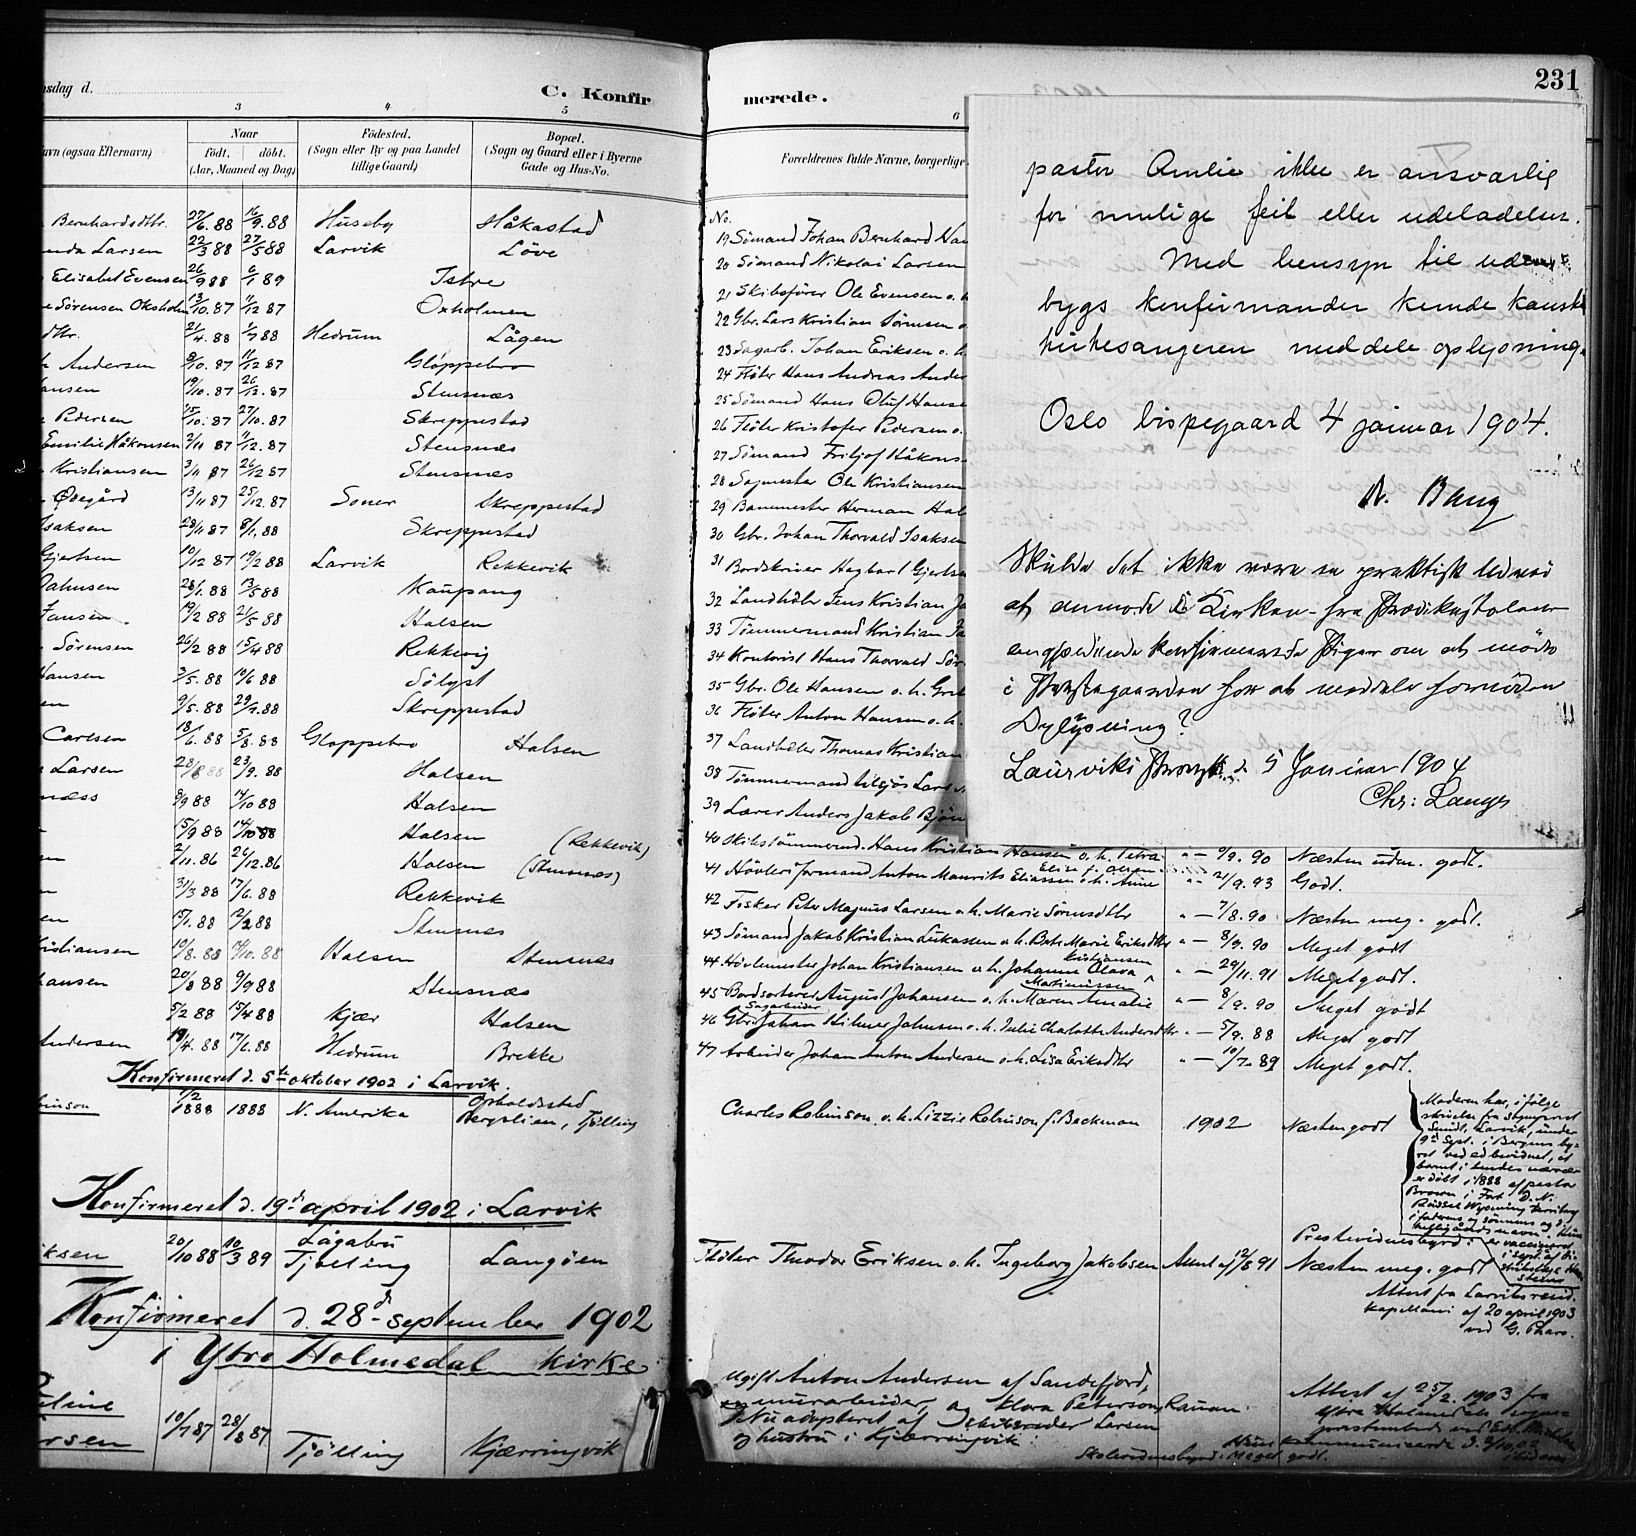 231
nsdag d.
C. Konfir
merede.
3
4
5
6
avn (ogsaa Efternavn)
Naar
födt. döbt.
(Aar, Maaned og Dag)
Födested.
(Sogn eller By og paa Landet
tillige Gaard)
Bopæl.
(Sogn og Gaard eller i Byerne
Gade og Hus-No.
Forældrenes fulde Navne, borgerlige
Bernhardsdtr. 27/6.88 16/9.88 Huseby Håkastad
nda Larsen 22/3 88 27/5 88 Larvik Löve
Elisabet Evensen 26/9 88 6/1 89 Istre
e Sörensen Oksholm 13/10.87 11/12 87 Oxholmen
dtr. 2/4.88 1/7 88 Hedrum Lågen
Andersen 8/10.87 11/12 87 Gloppebro
ansen 19/10.87 26/12.87 Stensnæs
Pedersen 15/10.87 27/10.87 Skreppestad
Emilie Håkonsen 2/11 87 11/12.87 Stensnæs
Kristiansen 3/11 87 26/12 87 Stensnæs
Ødegård 13/11 87 25/12.87 Soner Skreppestad
saksen 28/11 87 8/1.88 Skreppestad
Gjertsen 10/12 87 19/2 88 Larvik Rekkevik
28/1.88 13/5 88 Kaupang
Jansen. 19/2 88 21/5 88 Halsen
Sörensen 26/2 88 15/4 88 Rekkevig
Hansen 3/5.88 10/6 88 Sölyst
en 9/5.88 29/7.88 Skreppestad
Carlsen 18/6.88 5/8.88 Gloppebro Halsen
Larsen 28/8 88 23/9.88 Halsen
næss 8/9 88 14/10 88 Halsen
15/9 88 14/10 88 Halsen (Rekkevik)
en 2/11.86 26/12.86 Halsen (Stensnæs)
n 31/3 88 17/6.88 Rekkevik
en 15/1.88 12/2 88 Stensnæs
Kristiansen 10/8.88 14/10.88 Halsen Stensnæs
hansen 20/8 88 9/9 88 Stensnæs
5/2 88 15/4 88 Kjær Halsen
Andersen 19/4.88 17/6.88 Hedrum Brekke
Konfirmeret d. 5te oktober 1902 i Larvik.
binson 1/2 1888 1888 N. Amerika Opholdssted
Bergslien, Tjölling
Konfirmeret d. 19de april 1902 i Larvik
iksen 20/10 88 10/3 89 Lågabru
Tjölling Langöen
Konfirmeret d. 28de september 1902
i Ytre Holmedal kirke
line
rsen 10/7 87 28/8 87 Tjölling Kjærringvik
No.
19 Sömand Johan Bernhard Han
20 Sömand Nikolai Larsen
21 Skibsförer Ole Evensen o. h
22 Gbr. Lars Kristian Sörensen o
23 Sagarb. Johan Eriksen o. h
24 Flöter Hans Andreas Ander
25 Sömand Hans Oluf Hanse
26 Flöter Kristofer Pedersen o.
27 Sömand Fritjof Håkons
28 Sagmester Ole Kristiansen
29 Banmester Herman Hal
30 Gbr. Johan Thorvald Isaksen
31 Bordskriver Hagbart Gjertse
32 Landhdlr Jens Kristian Ja
33 Tömmermand Kristian Ja
34 Kontorist Hans Thorvald Sör
35 Gbr. Ole Hansen o. h. Gret
36 Flöter Anton Hansen o. h.
37 Landhdler Thomas Kristian
38 Tömmermand Eliseus Lars
39 Lærer Anders Jakob Bjön
40 Skibstömmermd. Hans Kristian Hansen o. h. Petra " — 9/9. 90 Næsten udm. godt.
Elise f. Olsen
41 Hövleriformand Anton Maurits Eliassen o. h. Anne " — 21/9. 93 Godt.
42 Fisker Peter Magnus Larsen o. h. Marie Sörensdtr " — 7/8. 90 Næsten meg. godt.
43 Sömand Jakob Kristian Lukassen o. h. Berte Marie Eriksdtr " — 8/9. 90 Meget godt
Kristiansen
44 Hövlemester Johan Kristiansen o. h. Johanne Olava " — 29/11. 91 Meget godt.
Martinussen
45 Bordsorterer August Johansen o. h. Maren Amalie " — 8/9. 90 Meget godt
Sagarbeider
46 Gbr. Johan Hilmer Johnsen o. h. Julie Charlotte Andersdtr " — 5/9. 88 Meget godt
47 Arbeider Johan Anton Andersen o. h. Lisa Eriksdtr " — 10/7. 89 Meget godt.
Charles Robinson o. h. Lizzie Robinson f. Backman 1902 Næsten godt
Moderen har, i fölge
skrivelse fra sogneprest
Smidt, Larvik, under
9de Sept. i Bergens by-
ret ved ed bevidnet, at
barnet i hendes nærvær
er döbt i 1888 af pastor
Brown i Fort D. N.
Russel Wyoming Territory
i faderens og
Flöter Theodor Eriksen o. h. Ingeborg Jakobsen Attest af 12/8 91 Næsten meg. godt
Prestevidnesbyrd:
er vaccineret
i sept. af
Attest fra Larviks resid.
kapellani af 20 april 1903
ved G. Thars.
Ugift Anton Andersen af Sandefjord,
murarbeider, og Klara Peterson, Rauan.
Nu adopteret af Larsen
og hustru i Kjærringvik.
Attest af 25/2. 1903 fra
Ytre Holmedals sogne-
prestembed ved
Hun kommunicerede d. 5/10.02
ibidem
Skolevidnesbyrd: Meget godt.
pastor Amlie ikke er ansvarlig
for mulige feil eller udeladelser.
Med hensyn til uden-
bygs konfirmander kunde kanske
kirkesangeren meddele oplysning.
Oslo bispegaard 4 januar 1904.
A. Bang
Skulde det ikke være en praktisk Udvei
at anmode i Kirken fra Prædikestolen
angjældende konfirmerede Piger om at möde
i Prestegaarden for at meddele fornöden
Oplysning?
Laurviks Provsti d. 5 Januar 1904
Chr: Lange